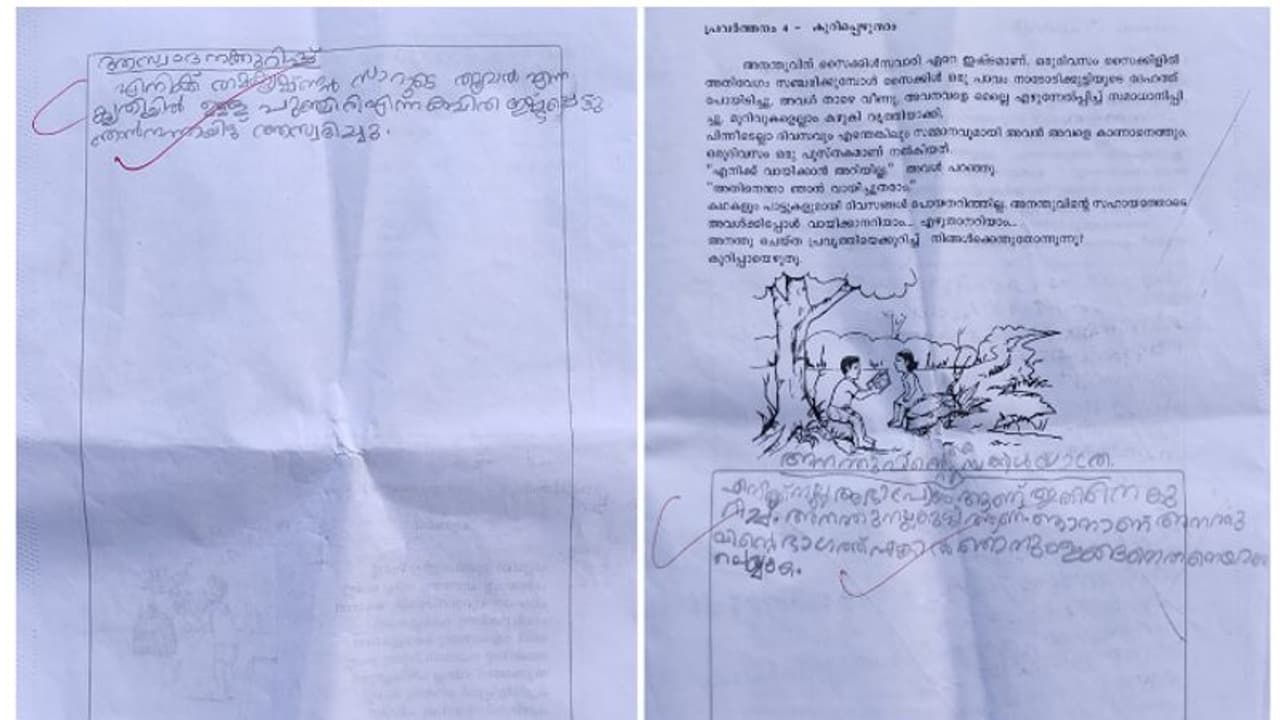 ആസ്വാദനക്കുറിപ്പ്
എനിക്ക് സാറുടെ തൂവൽ എന്ന
കൃതിയിൽ ഉള്ള പുഞ്ചിരി എന്ന കവിത ഇഷ്ടപ്പെട്ടു
ഞാൻ നന്നായിട്ട് ആസ്വദിച്ചു.
പ്രവർത്തനം 4 - കുറിപ്പെഴുതാം
അനന്തുവിന് സൈക്കിൾസവാരി ഏറെ ഇഷ്ടമാണ്. ഒരുദിവസം സൈക്കിളിൽ
അതിവേഗം സഞ്ചരിക്കുമ്പോൾ സൈക്കിൾ ഒരു പാവം നാടോടിക്കുട്ടിയുടെ ദേഹത്ത്
പോയിടിച്ചു. അവൾ താഴെ വീണു. അവനവളെ മെല്ലെ എഴുന്നേൽപ്പിച്ച് സമാധാനിപ്പി
ച്ചു. മുറിവുകളെല്ലാം കഴുകി വൃത്തിയാക്കി.
പിന്നീടെല്ലാ ദിവസവും എന്തെങ്കിലും സമ്മാനവുമായി അവൻ അവളെ കാണാനെത്തും.
ഒരുദിവസം ഒരു പുസ്തകമാണ് നൽകിയത്.
"എനിക്ക് വായിക്കാൻ അറിയില്ല" അവൾ പറഞ്ഞു.
"അതിനെന്താ ഞാൻ വായിച്ചുതരാം"
കഥകളും പാട്ടുകളുമായി ദിവസങ്ങൾ പോയതറിഞ്ഞില്ല. അനന്തുവിന്റെ സഹായത്തോടെ
അവൾക്കിപ്പോൾ വായിക്കാനറിയാം... എഴുതാനറിയാം...
അനന്തു ചെയ്ത പ്രവൃത്തിയെക്കുറിച്ച് നിങ്ങൾക്കെന്തുതോന്നുന്നു?
കുറിപ്പായെഴുതൂ.
അനന്തുവിന്റെ സൈക്കിൾയാത്ര.
എനിക്ക് നല്ല അഭിപ്രായം ആണ് ഇതിനെ കു
റിച്ച്. അനന്തു നല്ല കുട്ടി ആണ് ഞാനാണ് അനന്തു
വിന്റെ ഭാഗത്ത് എങ്കിൽ ഞാനും